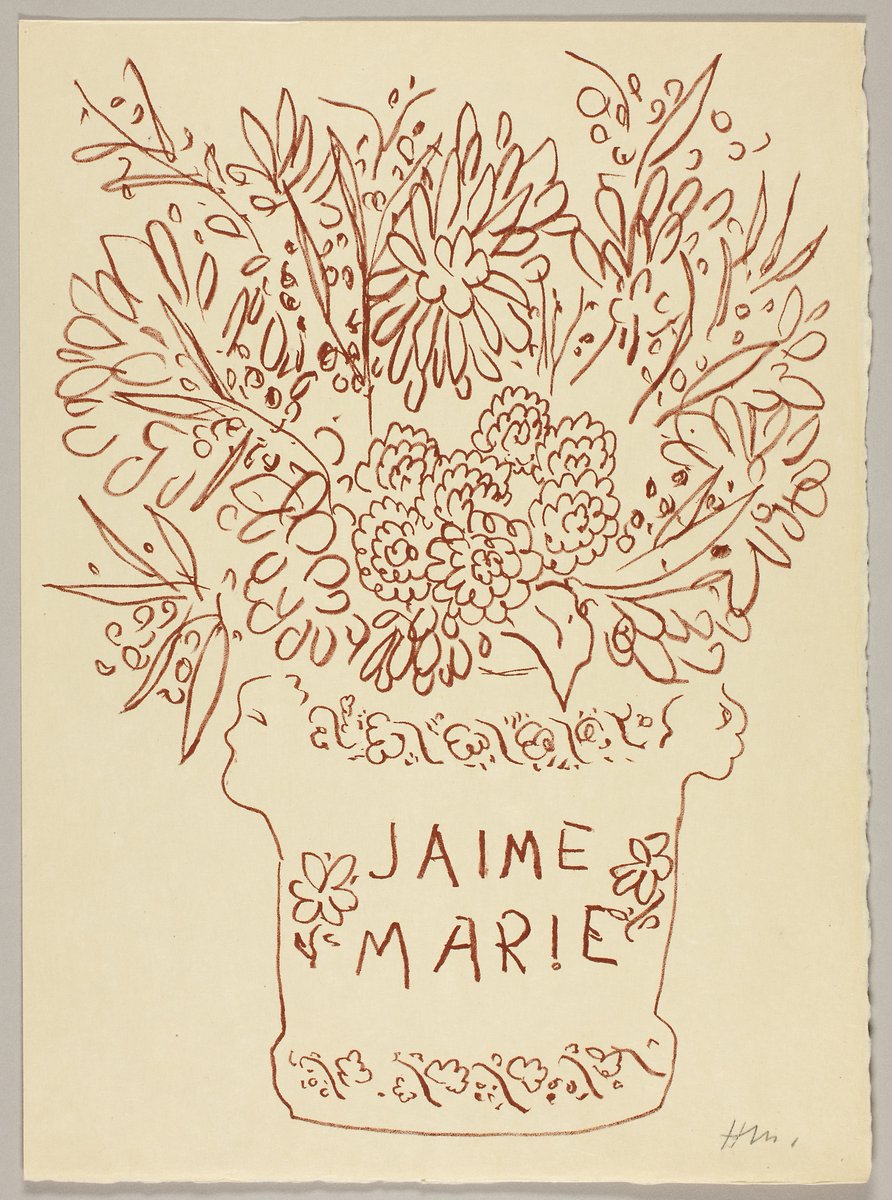 JAIME
MAR!E
HM.